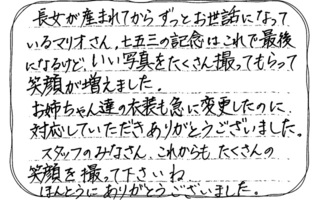 長女が産まれてからずっとお世話になって
いるマリオさん。七五三の記念はこれで最後
になるけど、いい写真をたくさん撮ってもらって
笑顔が増えました。
お姉ちゃん達の衣装も急に変更したのに、
対応していただきありがとうございました。
スタッフのみなさん、これからも、たくさんの
笑顔を撮って下さいね
ほんとうにありがとうございました。